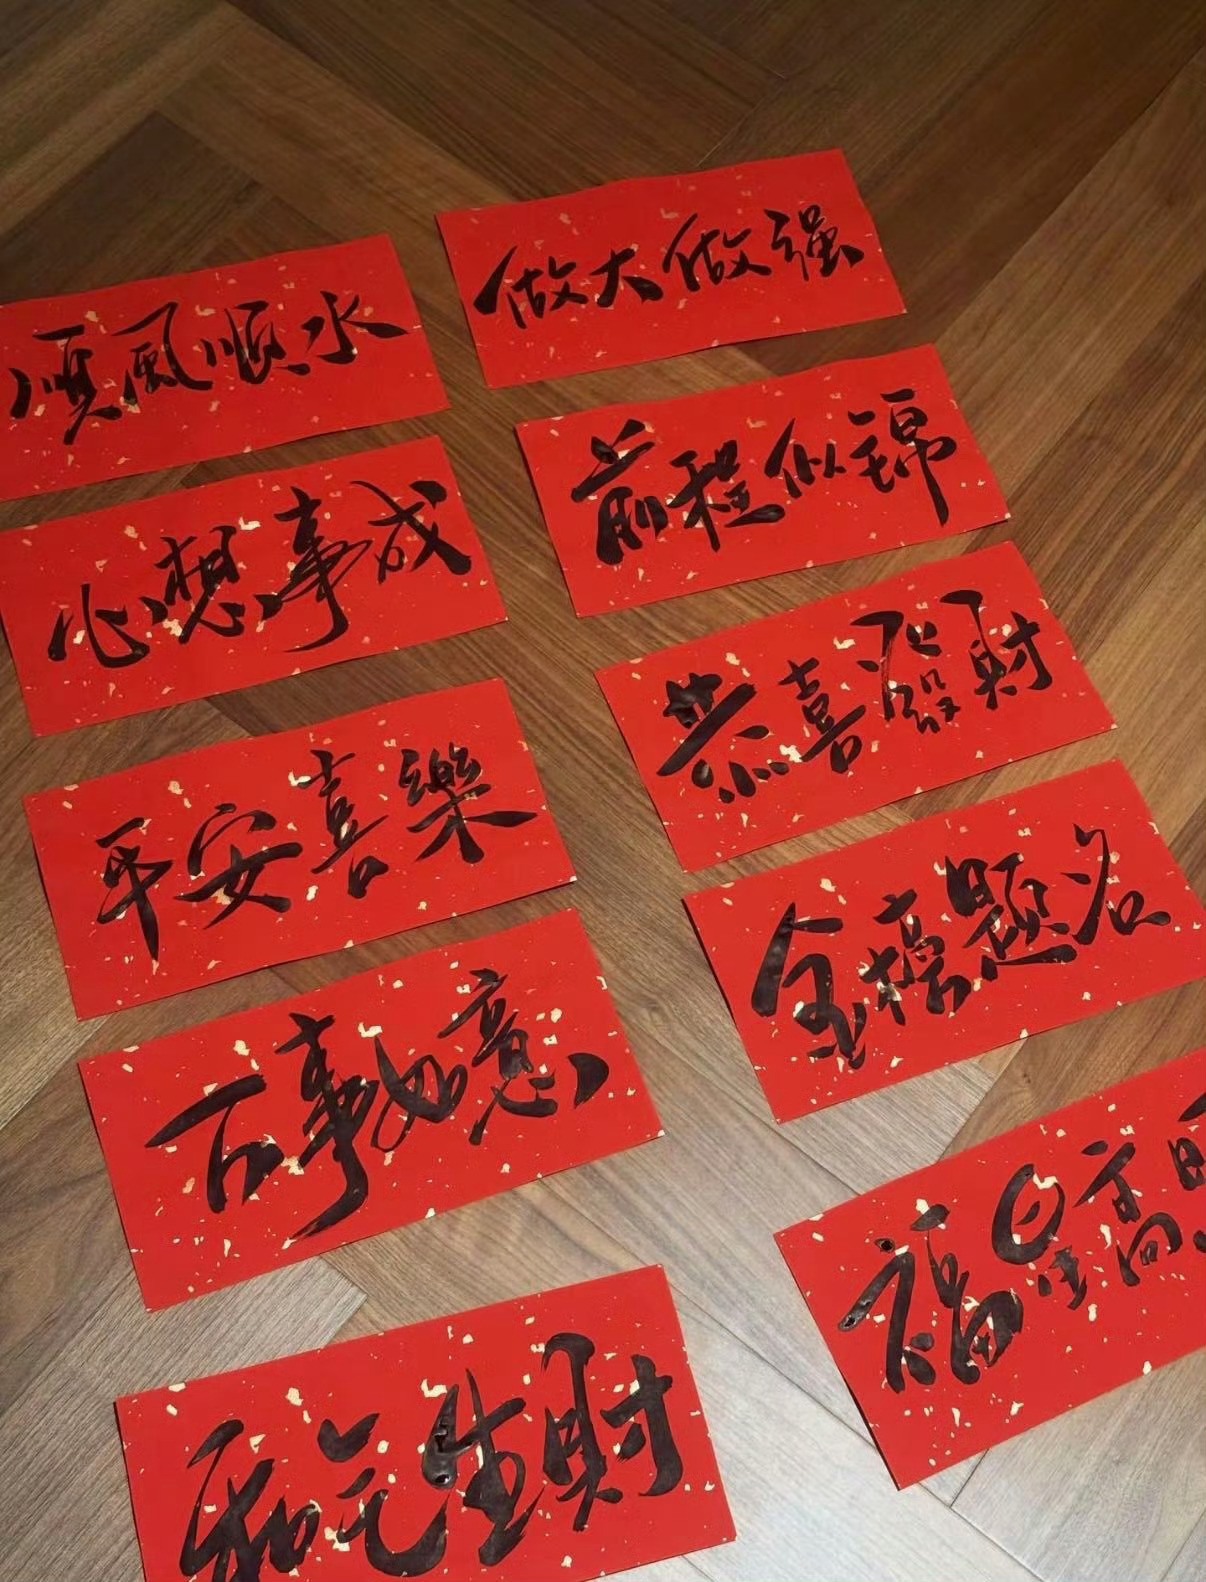 順風順水
心想事成
平安喜樂
百事如意
和氣生財
做大做强
前程似锦
恭喜發財
金榜題名
福星高照